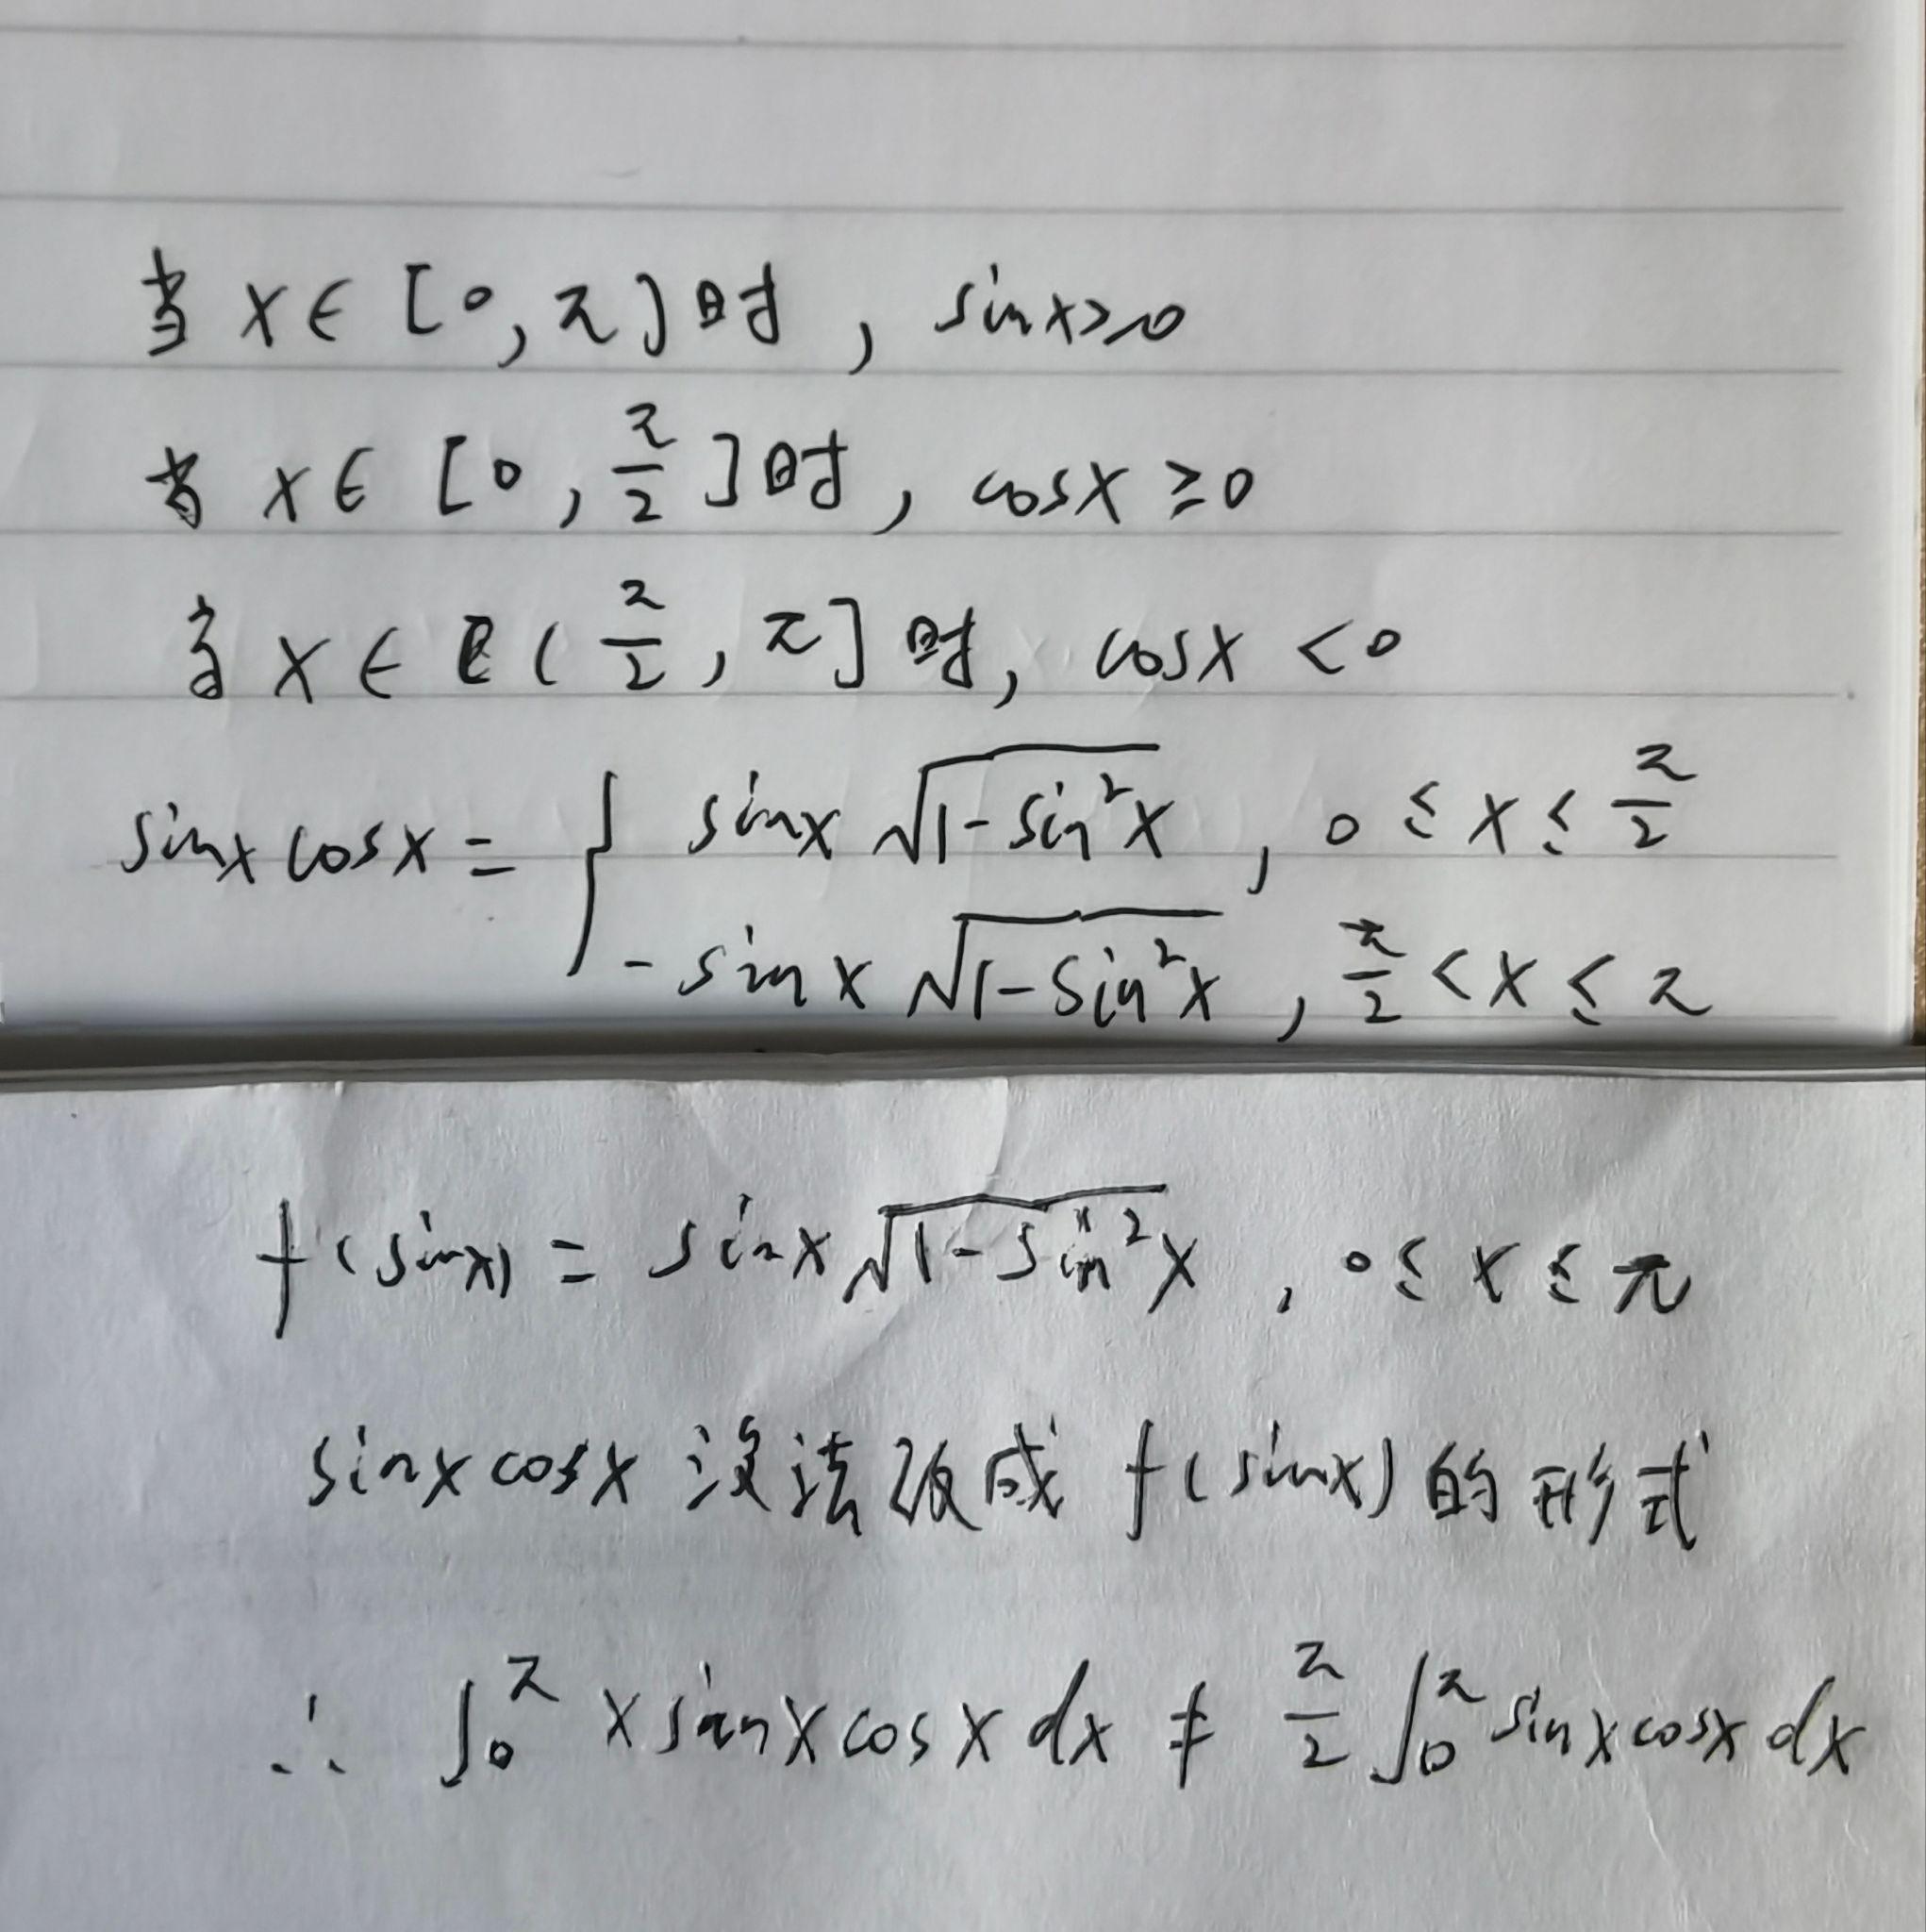 当 x∈[0,π]时, sinx≥0
当 x∈[0,π/2]时, cosx≥0
当 x∈(π/2,π]时, cosx<0
sinxcosx={ sinx√(1-sin²x), 0≤x≤π/2
-sinx√(1-sin²x), π/2<x≤π
f(sinx)=sinx√(1-sin²x), 0≤x≤π
sinxcosx没法改成f(sinx)的形式
∴ ∫₀^π xsinxcosxdx≠π/2∫₀^π sinxcosxdx